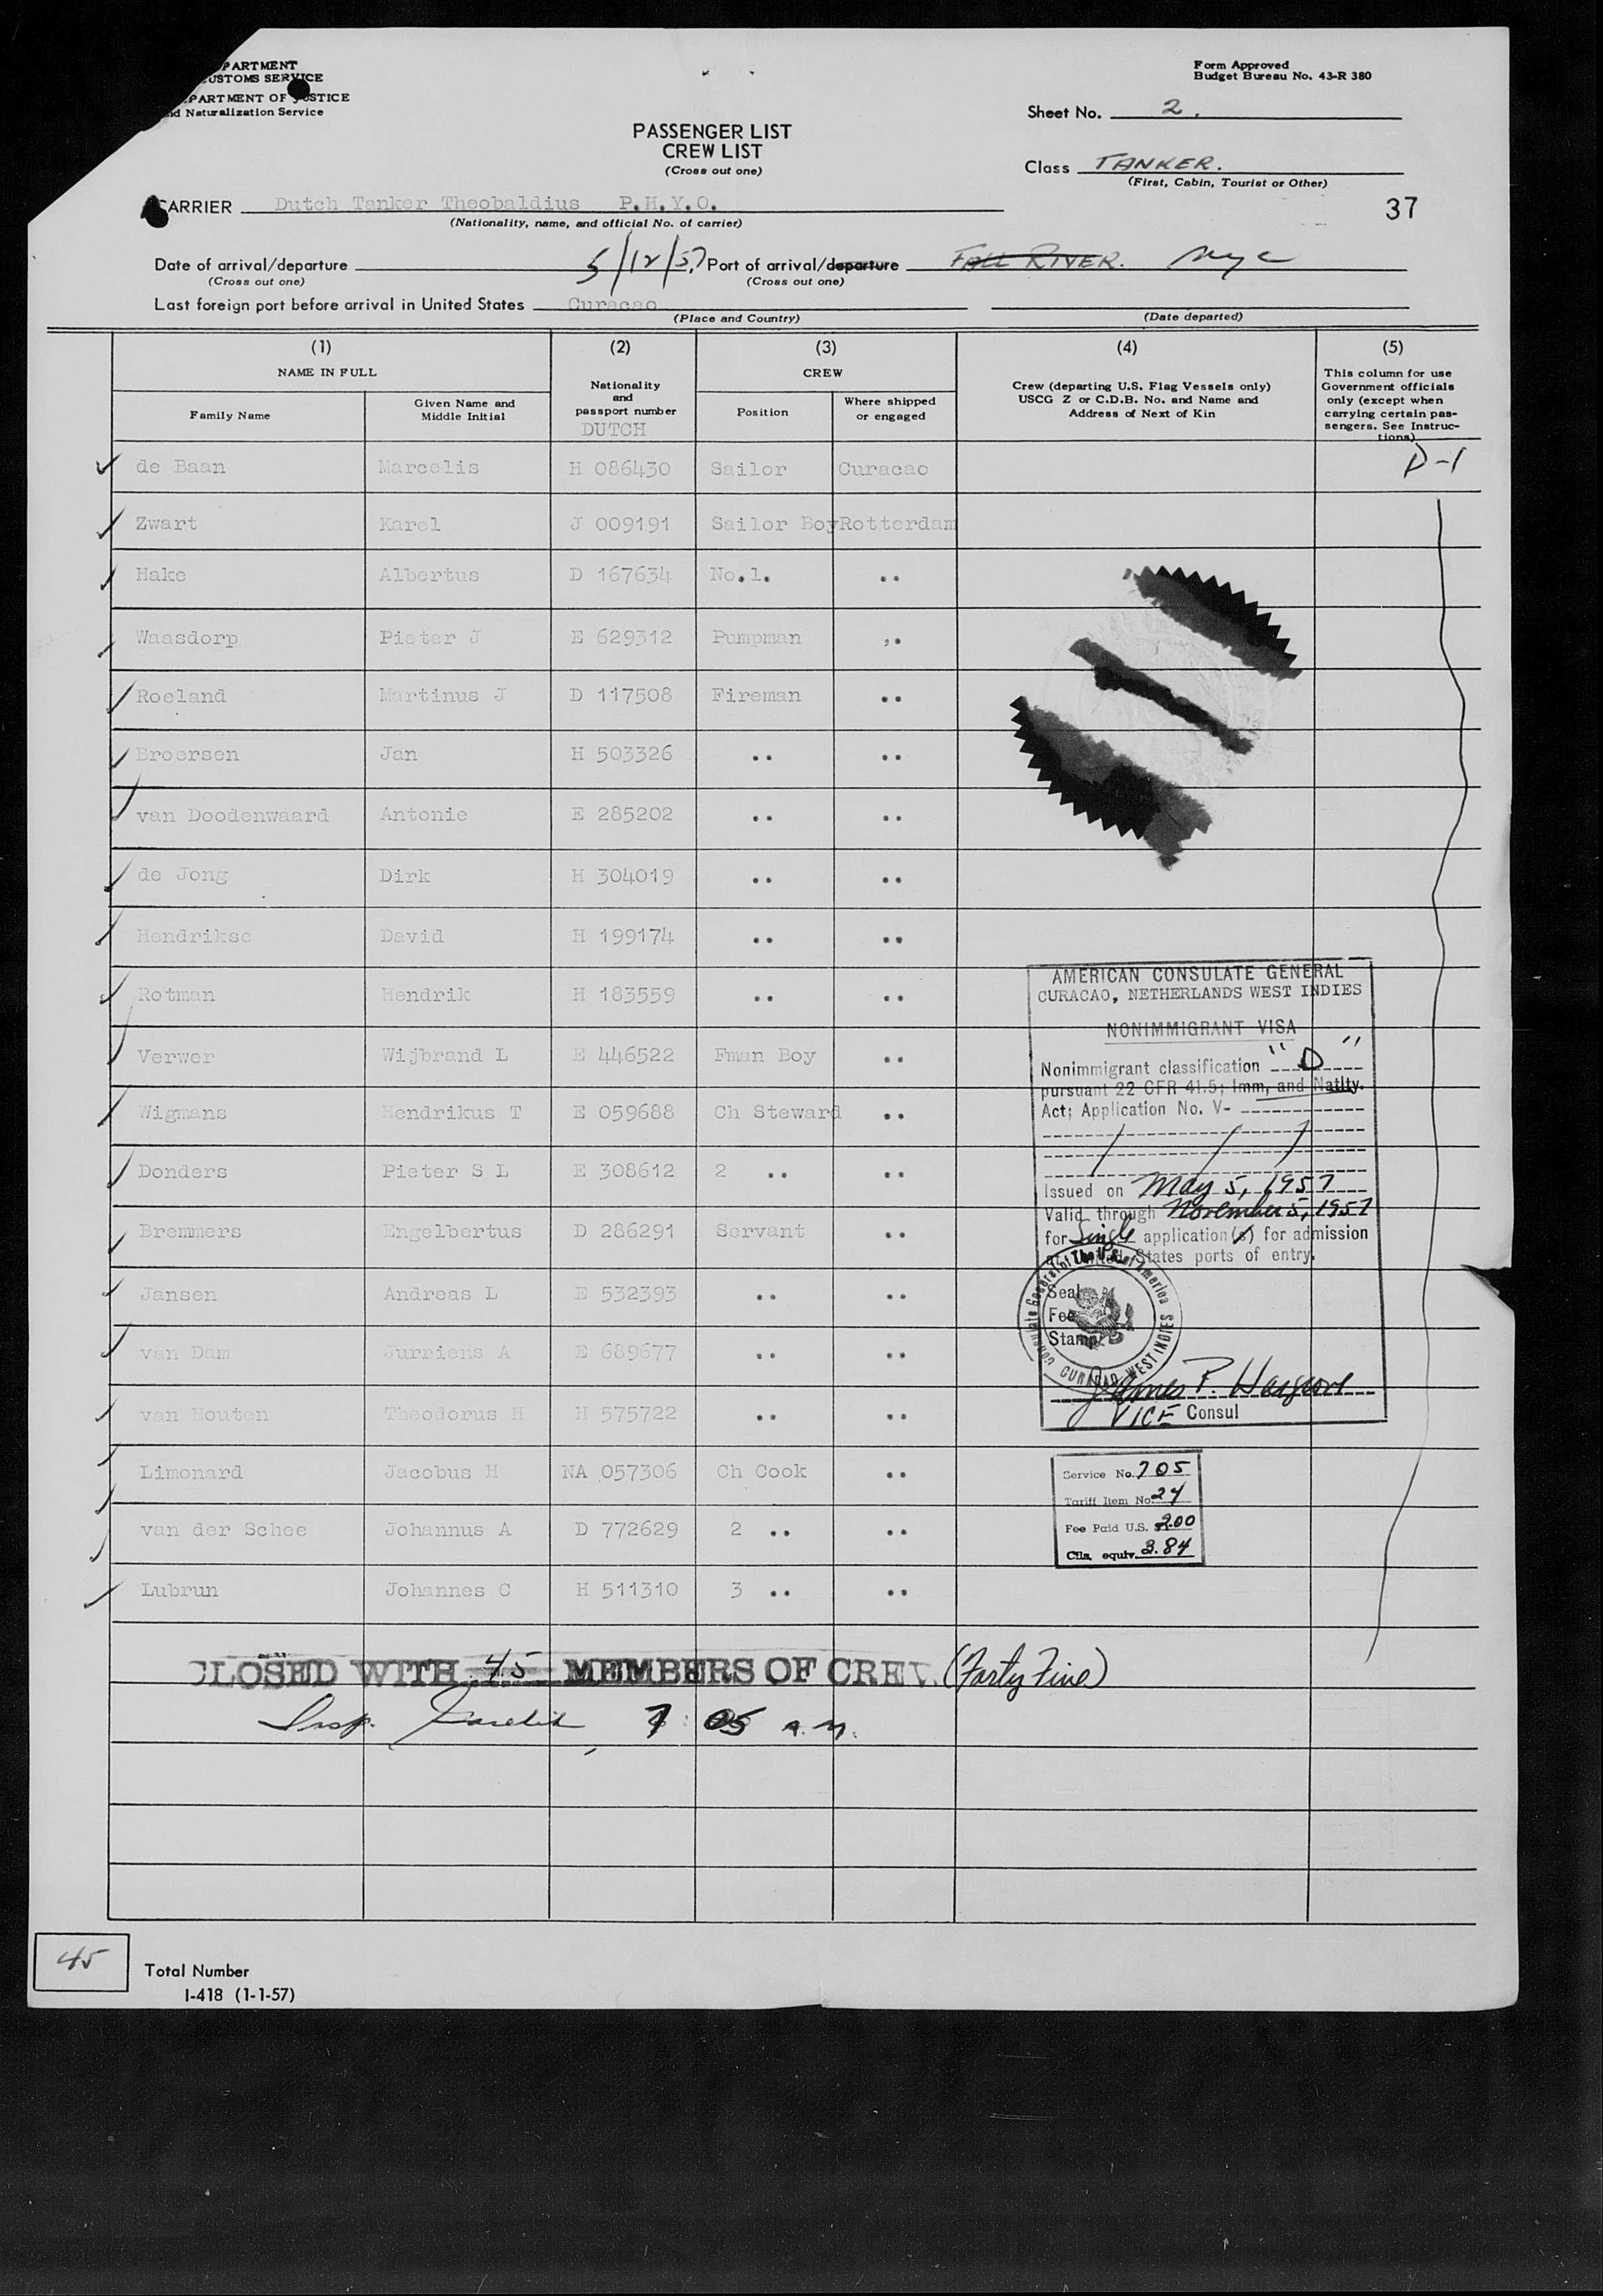 PARTMENT
CUSTOMS SERVICE
PARTMENT OF JUSTICE
nd Naturalization Service
Form Approved
Budget Bureau No. 43-R 380
Sheet No. 2.
PASSENGER LIST
CREW LIST
(Cross out one)
Class TANKER.
(First, Cabin, Tourist or Other)
CARRIER Dutch Tanker Theobaldius P.H.Y.O.
(Nationality, name, and official No. of carrier)
37
Date of arrival/departure 5/12/57 Port of arrival/departure FALL RIVER. Nyc
(Cross out one) (Cross out one)
Last foreign port before arrival in United States Curacao
(Place and Country) (Date departed)
(1) (2) (3) (4) (5)
NAME IN FULL
Family Name
Given Name and Middle Initial
Nationality and passport number
DUTCH
CREW
Position
Where shipped or engaged
Crew (departing U.S. Flag Vessels only)
USCG Z or C.D.B. No. and Name and
Address of Next of Kin
This column for use
Government officials
only (except when
carrying certain pas-
sengers. See Instruc-
tions)
de Baan Marcelis H 086430 Sailor Curacao D-1
Zwart Karel J 009191 Sailor Boy Rotterdam
Hake Albertus D 167634 No.1. ..
Waasdorp Pieter J E 629312 Pumpman ,.
Roeland Martinus J D 117508 Fireman ..
Broersen Jan H 503326 .. ..
van Doodenwaard Antonie E 285202 .. ..
de Jong Dirk H 304019 .. ..
Hendrikse David H 199174 .. ..
Rotman Hendrik H 183559 .. ..
Verwer Wijbrand L E 446522 Fman Boy ..
Wigmans Hendrikus T E 059688 Ch Steward ..
Donders Pieter S L E 308612 2 .. ..
Bremmers Engelbertus D 286291 Servant ..
Jansen Andreas L E 532393 .. ..
van Dam Jurriens A E 689677 .. ..
van Houten Theodorus H H 575722 .. ..
Limonard Jacobus H NA 057306 Ch Cook ..
van der Schee Johannus A D 772629 2 .. ..
Lubrun Johannes C H 511310 3 .. ..
AMERICAN CONSULATE GENERAL
CURACAO, NETHERLANDS WEST INDIES
NONIMMIGRANT VISA
Nonimmigrant classification "D"
pursuant 22 CFR 41.5; Imm, and Natlty.
Act; Application No. V-
Issued on May 5, 1957
Valid through November 5, 1957
for Single application(s) for admission
at United States ports of entry.
Seal
Fee
Stamp
CURACAO WEST INDIES
James P.
VICE Consul
Service No. 705
Tariff Item No. 24
Fee Paid U.S. $2.00
Cfls. equiv. 3.84
CLOSED WITH 45 MEMBERS OF CREW (Forty Five)
Insp. 7:05 A.M.
45
Total Number
I-418 (1-1-57)